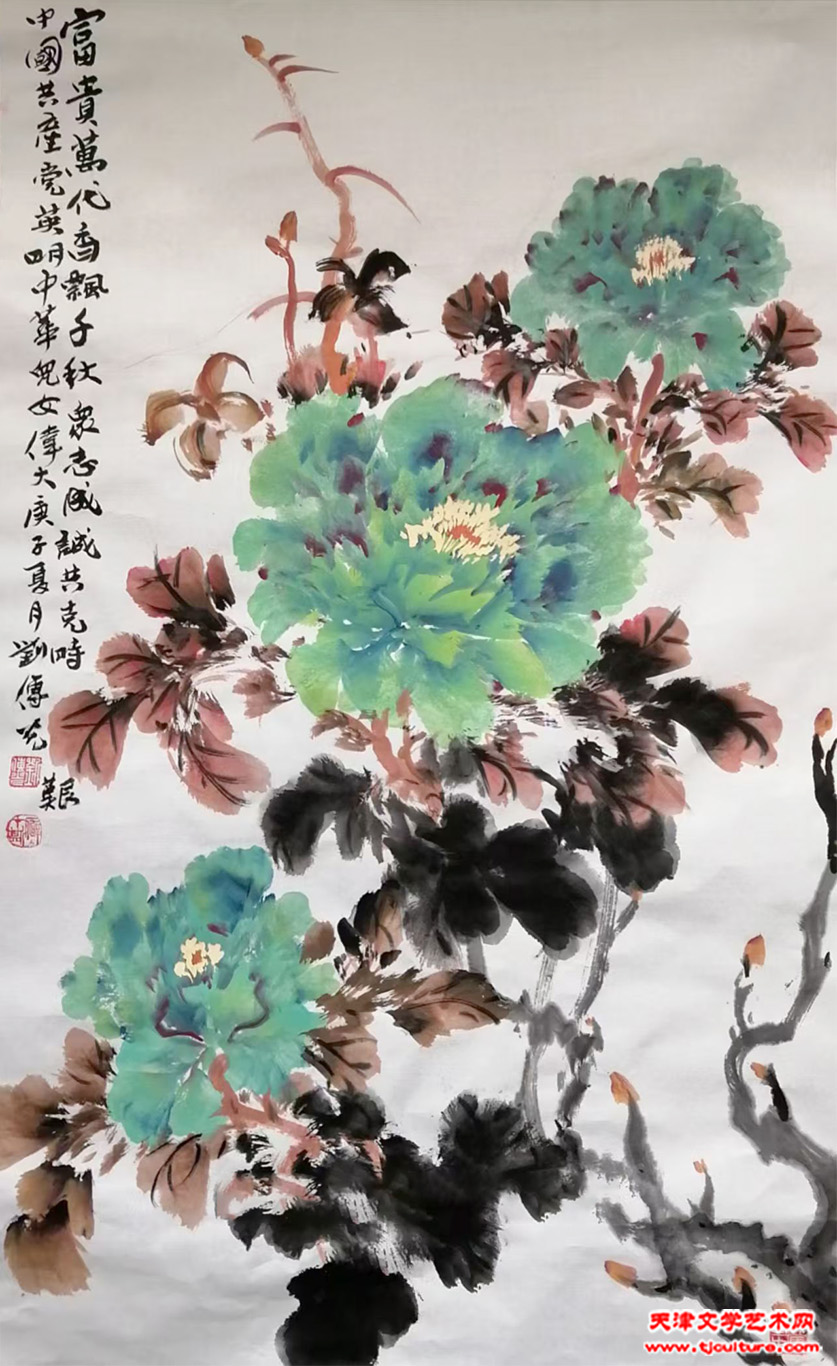 富貴萬代香飄千秋眾志成誠共克時艱
中國共產党英明中華兒女偉大庚子夏月劉傳光
天津文学艺术网
www.tjculture.com